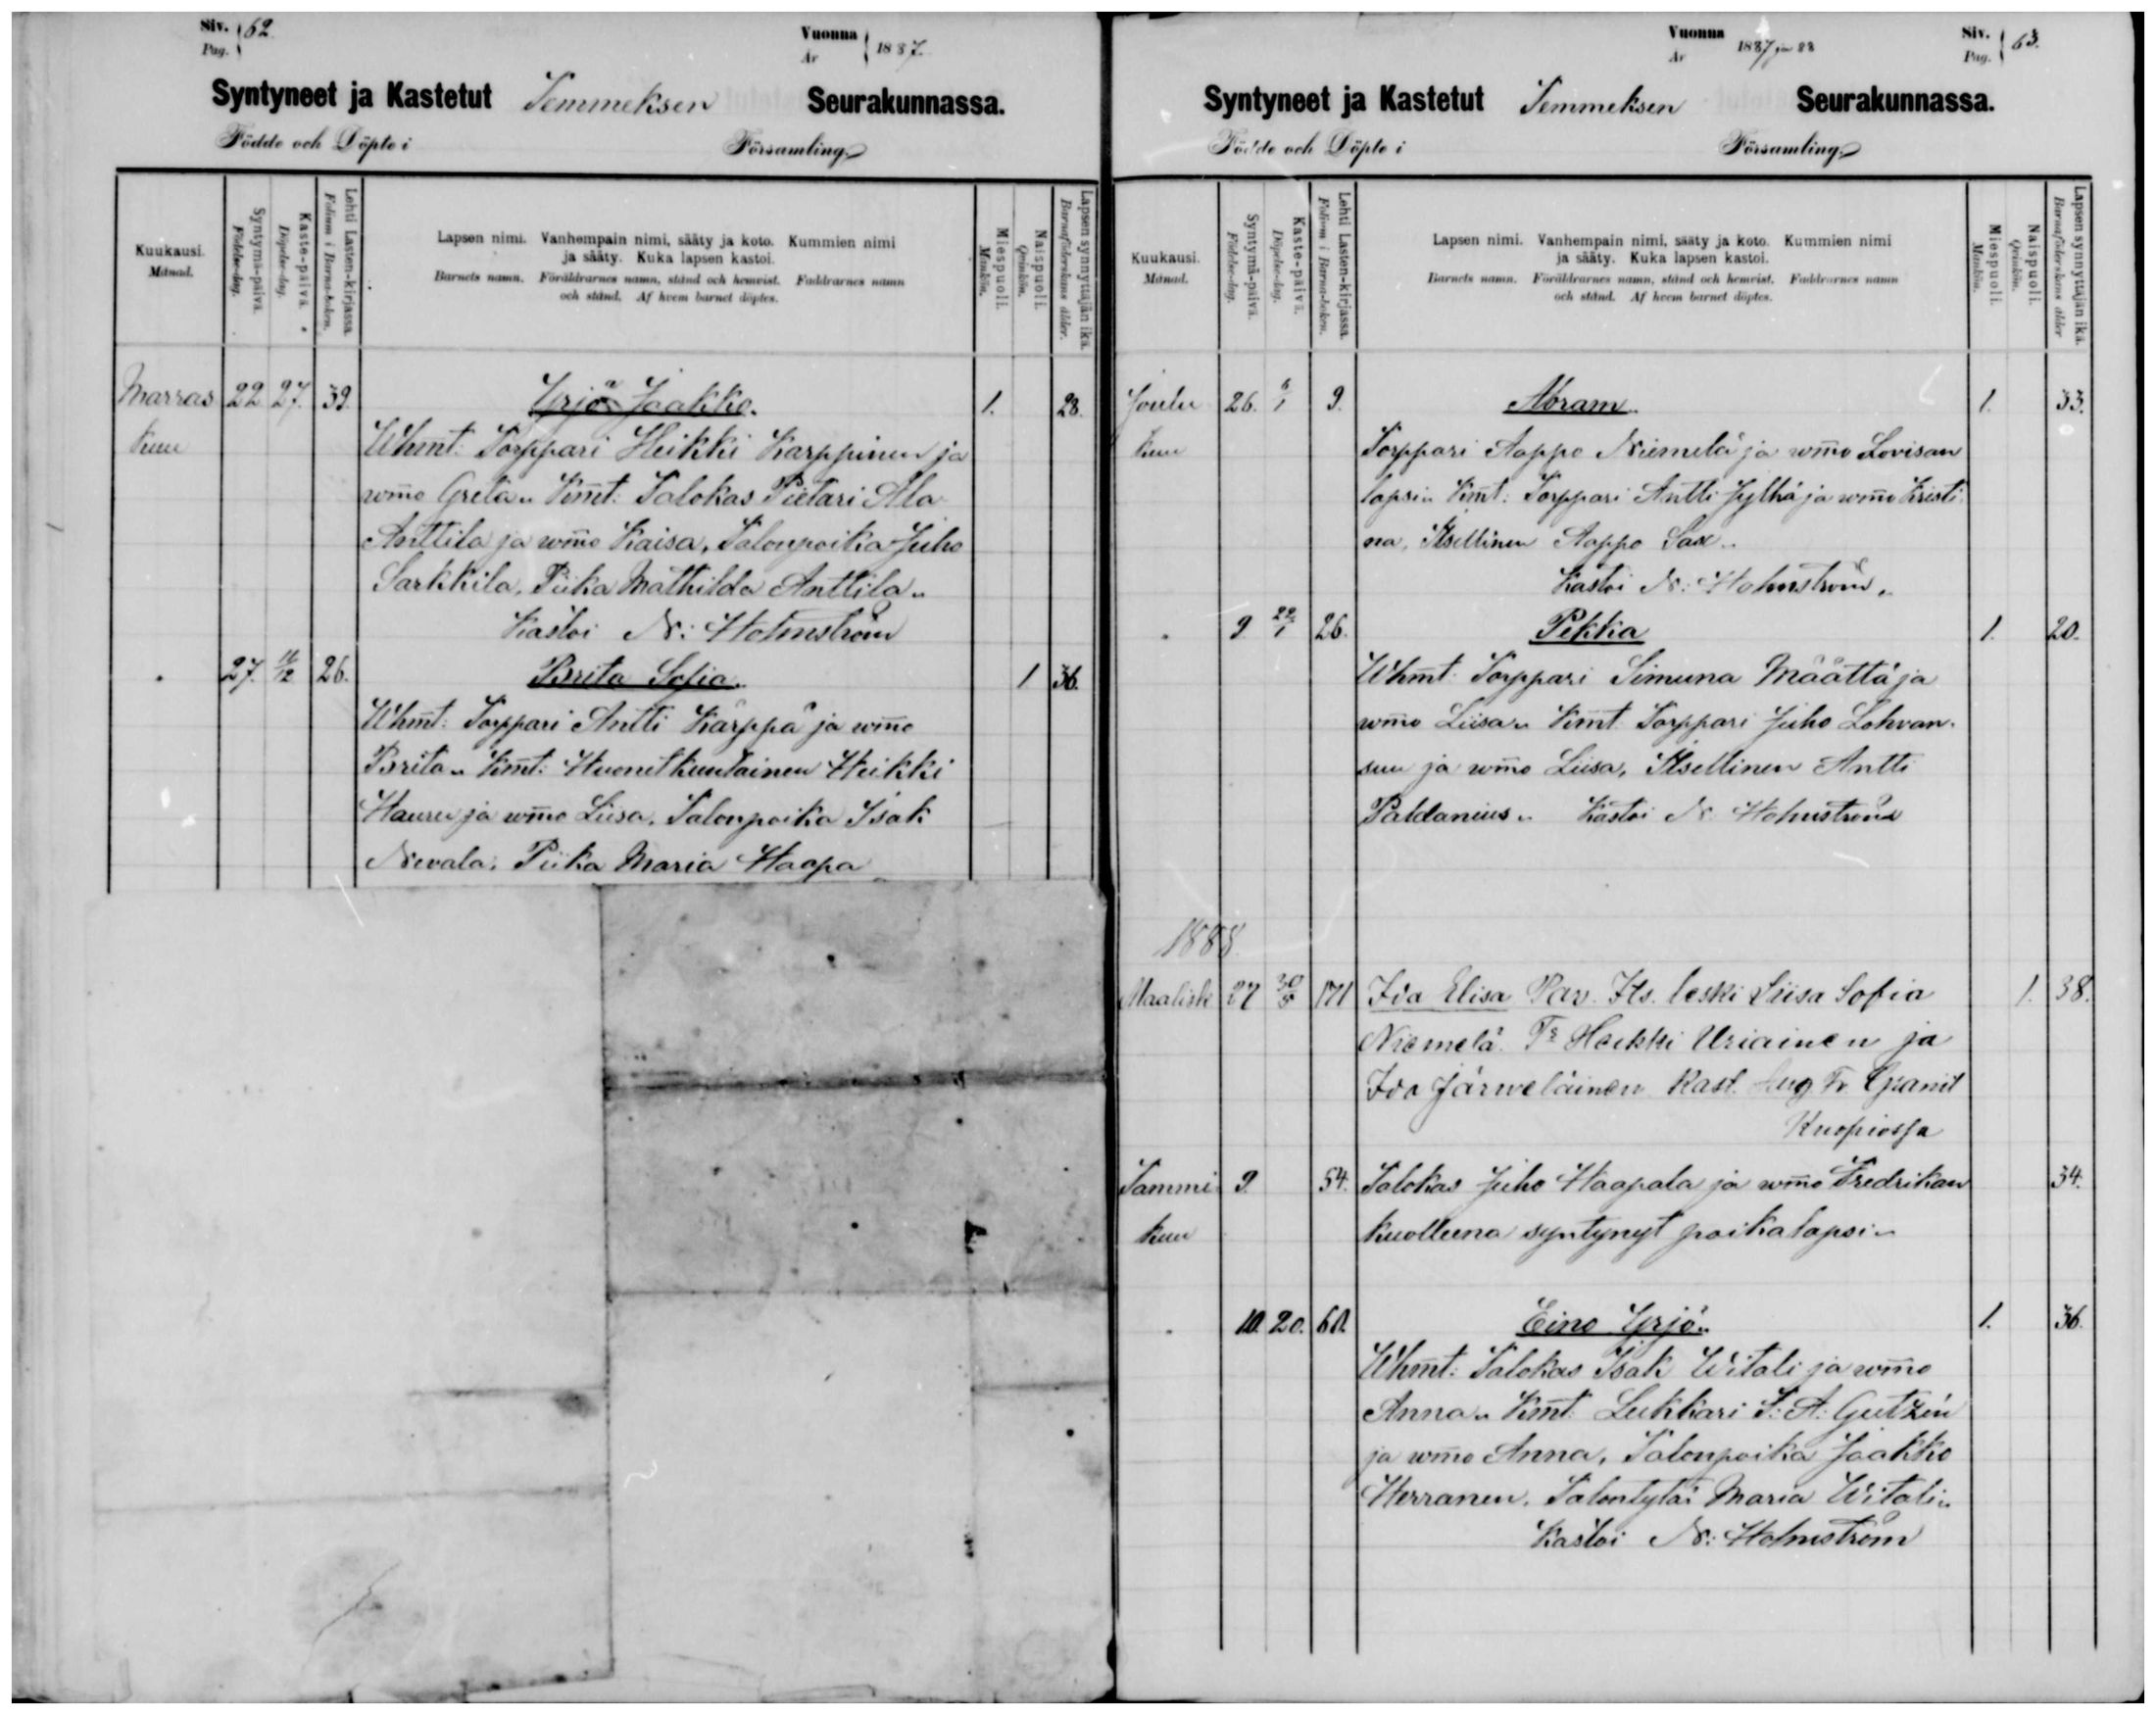 Siv. 62
Pag.
Vuonna 1887.
År
Syntyneet ja Kastetut Temmeksen Seurakunnassa.
Födde och Döpte i Församling
Kuukausi.
Månad.
Syntymä-päivä.
Födelse-dag.
Kaste-päivä.
Döpelse-dag.
Lehti Lasten-kirjassa.
Folium i Barna-boken.
Lapsen nimi. Vanhempain nimi, sääty ja koto. Kummien nimi
ja sääty. Kuka lapsen kastoi.
Barnets namn. Föräldrarnes namn, stånd och hemvist. Faddrarnes namn
och stånd. Af hvem barnet döptes.
Miespuoli.
Mankön.
Naispuoli.
Qvinkön.
Lapsen synnyttäjän ikä.
Barnaföderskans ålder.
Marras 22 27. 39. Yrjö Jaakko. 1. 28.
kuu Whmt: Torppari Heikki Karppinen ja
wmo Greta. Kmt: Talokas Pietari Ala
Anttila ja wmo Kaisa, Talonpoika Juho
Sarkkila, Piika Mathilda Anttila.
Kastoi N: Holmström
" 27. 11/12 26. Brita Sofia. 1 36.
Whmt: Torppari Antti Kärppä ja wmo
Brita. Kmt: Huonetkuntainen Heikki
Hauru ja wmo Liisa, Talonpoika Isak
Nevala, Piika Maria Haapa
Vuonna 1887 ja 88
År
Siv. 63.
Pag.
Syntyneet ja Kastetut Temmeksen Seurakunnassa.
Födde och Döpte i Församling
Kuukausi.
Månad.
Syntymä-päivä.
Födelse-dag.
Kaste-päivä.
Döpelse-dag.
Lehti Lasten-kirjassa.
Folium i Barna-boken.
Lapsen nimi. Vanhempain nimi, sääty ja koto. Kummien nimi
ja sääty. Kuka lapsen kastoi.
Barnets namn. Föräldrarnes namn, stånd och hemvist. Faddrarnes namn
och stånd. Af hvem barnet döptes.
Miespuoli.
Mankön.
Naispuoli.
Qvinkön.
Lapsen synnyttäjän ikä.
Barnaföderskans ålder
Joulu 26. 6/1 9. Abram. 1. 33.
kuu Torppari Aappo Niemelä ja wmo Lovisan
lapsi. Kmt: Torppari Antti Jylhä ja wmo Kristi
na, Itsellinen Aappo Sax.
Kastoi N: Holmström.
" 9 22/1 26. Pekka 1. 20.
Whmt: Torppari Simuna Määttä ja
wmo Liisa. Kmt Torppari Juho Lohvan
suu ja wmo Liisa, Itsellinen Antti
Paldanius. Kastoi N. Holmström
1888.
Maalisk 27 30/5 171 Ida Elisa Par. Its. leski Liisa Sofia 1. 38.
Niemelä. Tr Heikki Uriainen ja
Ida Järweläinen Kast. Aug Fr Granit
Kuopiossa
Tammi 9. 54. Talokas Juho Haapala ja wmo Fredrikan 34.
kuu kuolleena syntynyt poikalapsi.
" 10. 20. 60. Eino Yrjö. 1. 36.
Whmt: Talokas Isak Witali ja wmo
Anna. Kmt: Lukkari S: A: Gutzén
ja wmo Anna, Talonpoika Jaakko
Herranen, Talontytär Maria Witali.
Kastoi N: Holmström